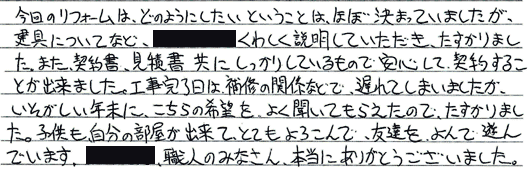 今回のリフォームは、どのようにしたいということは、ほぼ決まっていましたが、
建具についてなど、くわしく説明していただき、たすかりまし
た。また、契約書、見積書共にしっかりしているもので安心して契約するこ
とが出来ました。工事完了日は、補修の関係などで、遅れてしまいましたが、
いそがしい年末に、こちらの希望を、よく聞いてもらえたので、たすかりまし
た。子供も自分の部屋が出来て、とてもよろこんで、友達を、よんで遊ん
でいます。、職人のみなさん、本当にありがとうございました。